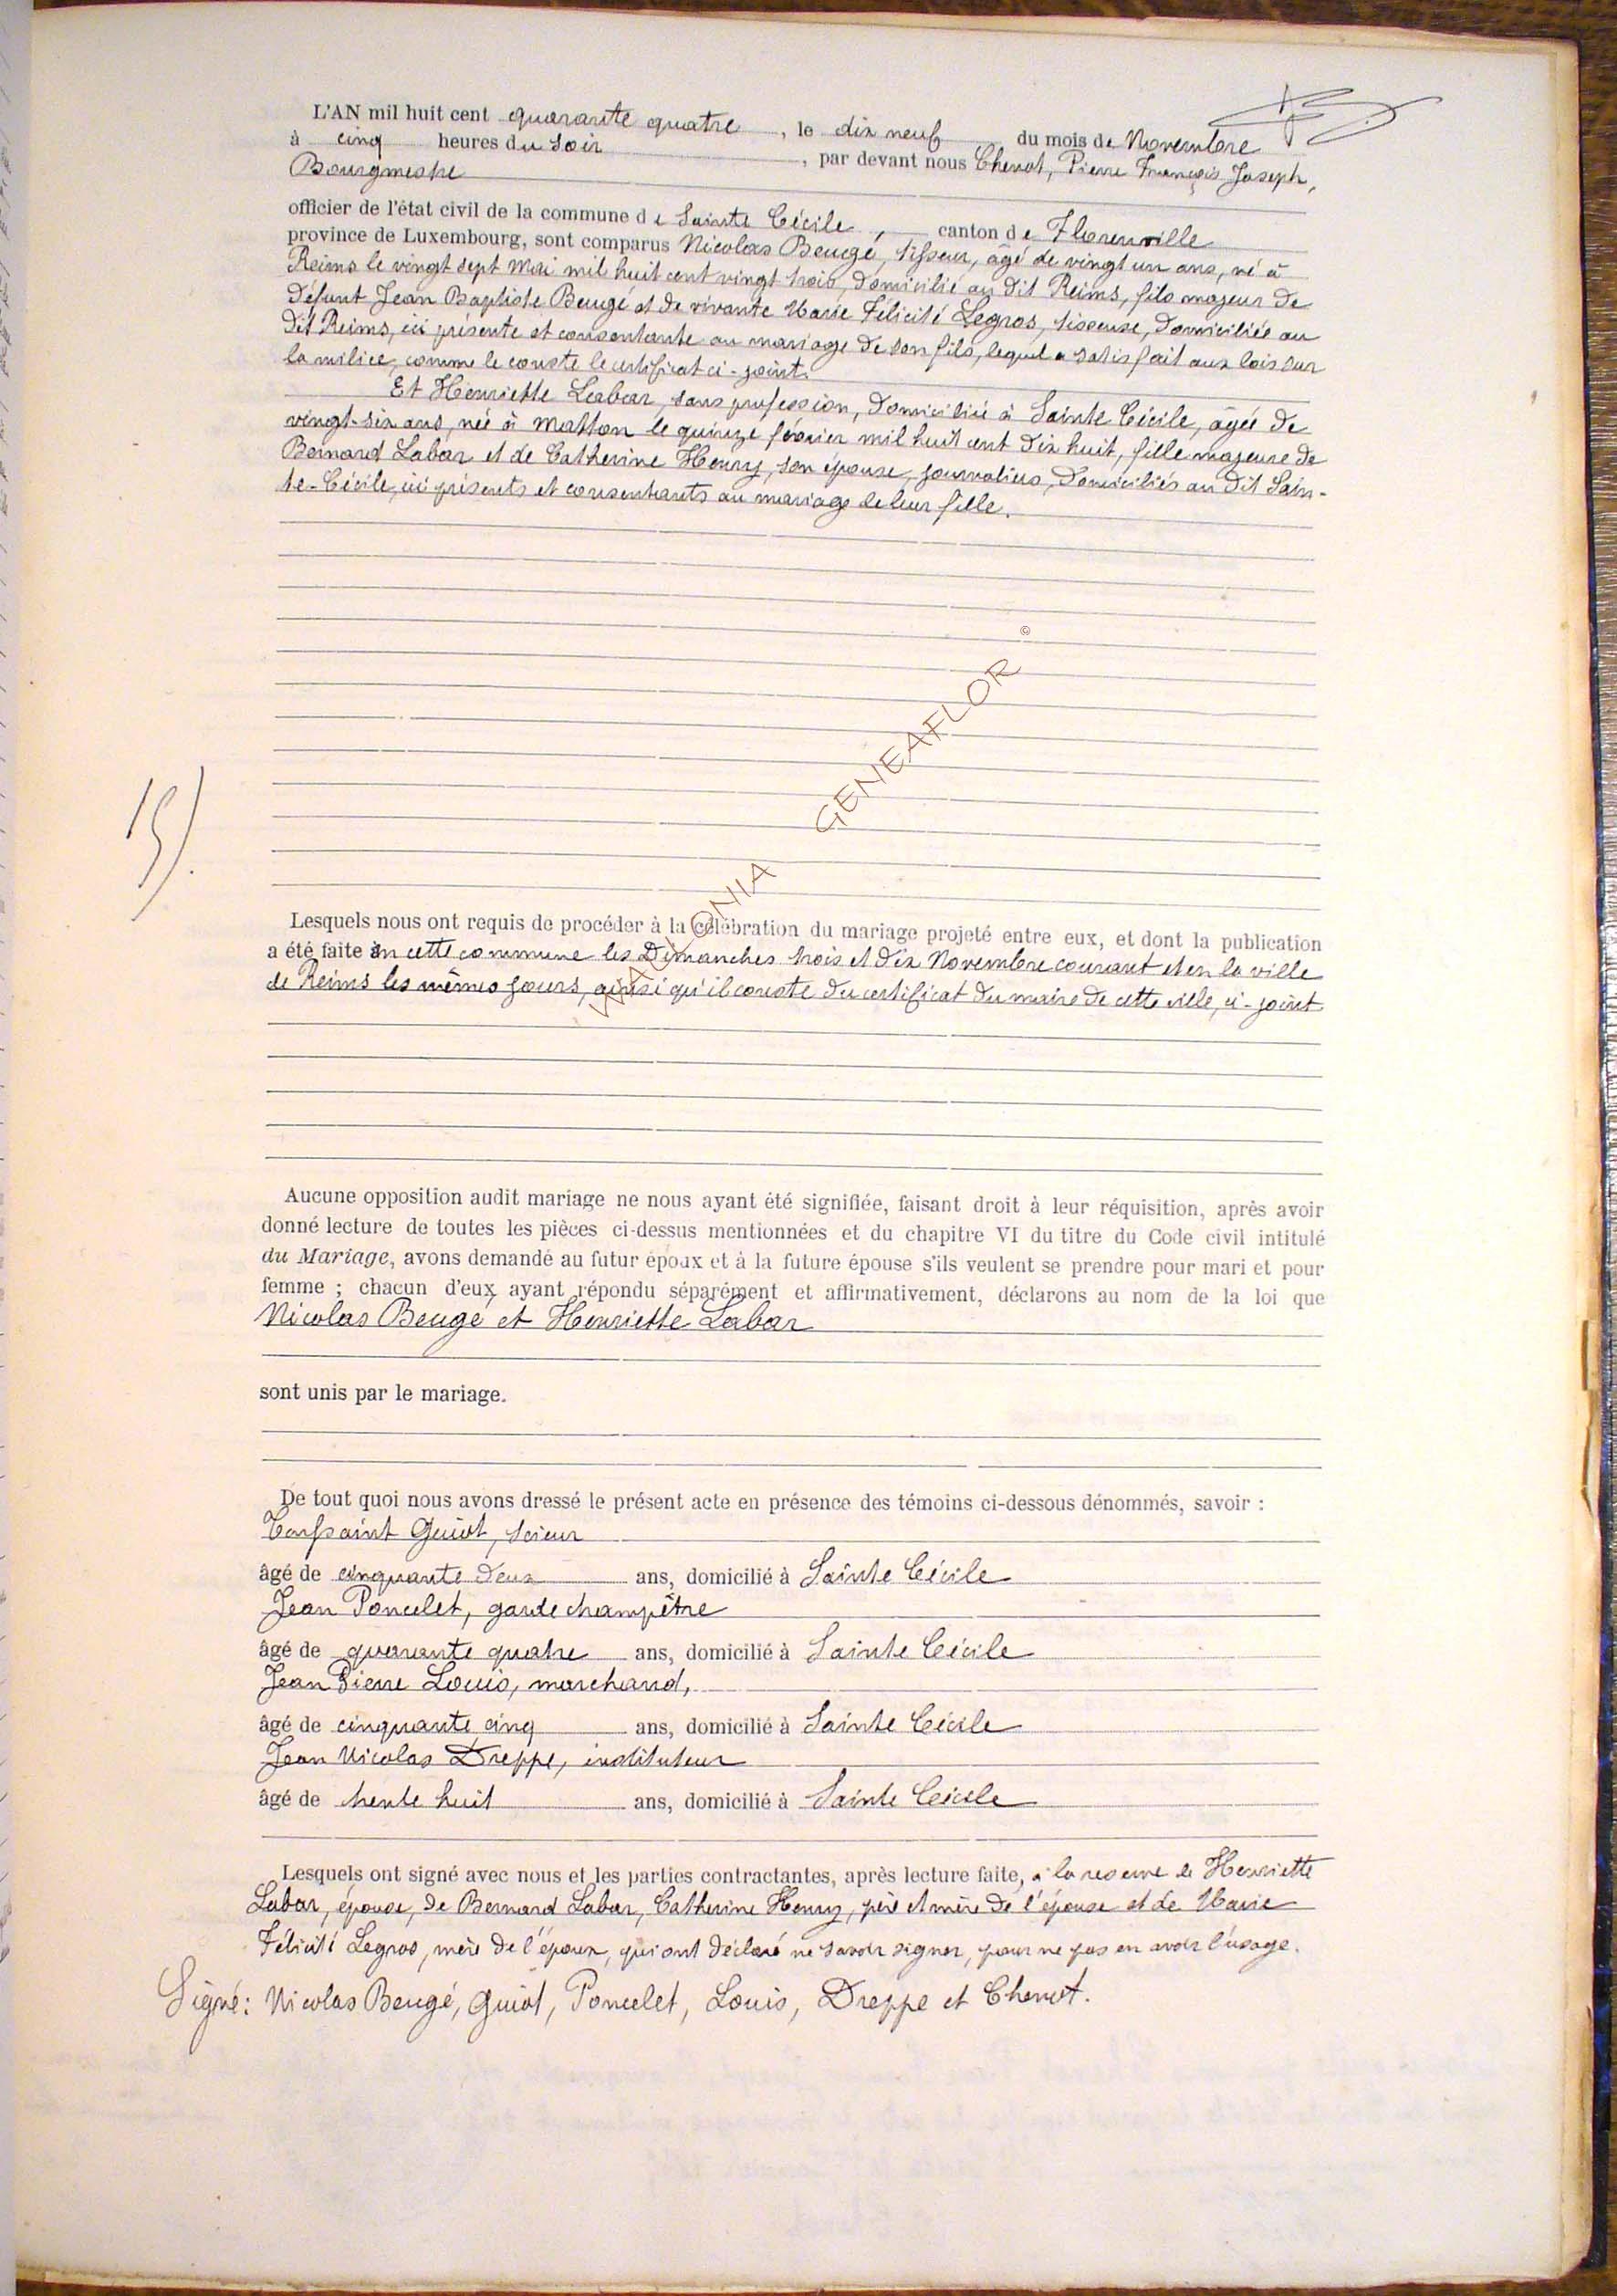 L'AN mil huit cent quarante quatre, le dix neuf du mois de Novembre
à cinq heures du soir, par devant nous Chenot, Pierre François Joseph,
Bourgmestre
officier de l'état civil de la commune de Sainte Cécile, canton de Florenville
province de Luxembourg, sont comparus Nicolas Beugé, tisseur, âgé de vingt un ans, né à
Reims le vingt sept mai mil huit cent vingt trois, domicilié au dit Reims, fils majeur de
défunt Jean Baptiste Beugé et de vivante Marie Félicité Legros, tisseuse, domiciliée au
dit Reims, ici présente et consentante au mariage de son fils, lequel a satisfait aux lois sur
la milice, comme le conste le certificat ci-joint.
Et Henriette Labar, sans profession, domiciliée à Sainte Cécile, âgée de
vingt-six ans, née à Matton le quinze février mil huit cent dix huit, fille majeure de
Bernard Labar et de Catherine Henry, son épouse, journaliers, domiciliés au dit Sain-
te-Cécile, ici présents et consentants au mariage de leur fille.
©
WALLONIA GENEAFLOR
15).
Lesquels nous ont requis de procéder à la célébration du mariage projeté entre eux, et dont la publication
a été faite en cette commune les Dimanches trois et dix Novembre courant et en la ville
de Reims les mêmes jours, ainsi qu'il conste du certificat du maire de cette ville, ci-joint
Aucune opposition audit mariage ne nous ayant été signifiée, faisant droit à leur réquisition, après avoir
donné lecture de toutes les pièces ci-dessus mentionnées et du chapitre VI du titre du Code civil intitulé
du Mariage, avons demandé au futur époux et à la future épouse s'ils veulent se prendre pour mari et pour
femme ; chacun d'eux ayant répondu séparément et affirmativement, déclarons au nom de la loi que
Nicolas Beugé et Henriette Labar
sont unis par le mariage.
De tout quoi nous avons dressé le présent acte en présence des témoins ci-dessous dénommés, savoir :
Toussaint Guiot, scieur
âgé de cinquante deux ans, domicilié à Sainte Cécile
Jean Poncelet, garde champêtre
âgé de quarante quatre ans, domicilié à Sainte Cécile
Jean Pierre Louis, marchand,
âgé de cinquante cinq ans, domicilié à Sainte Cécile
Jean Nicolas Dreppe, instituteur
âgé de trente huit ans, domicilié à Sainte Cécile
Lesquels ont signé avec nous et les parties contractantes, après lecture faite, à la reserve de Henriette
Labar, épouse, de Bernard Labar, Catherine Henry, père et mère de l'épouse et de Marie
Félicité Legros, mère de l'époux, qui ont déclaré ne savoir signer, pour ne pas en avoir l'usage.
Signé: Nicolas Beugé, Guiot, Poncelet, Louis, Dreppe et Chenot.